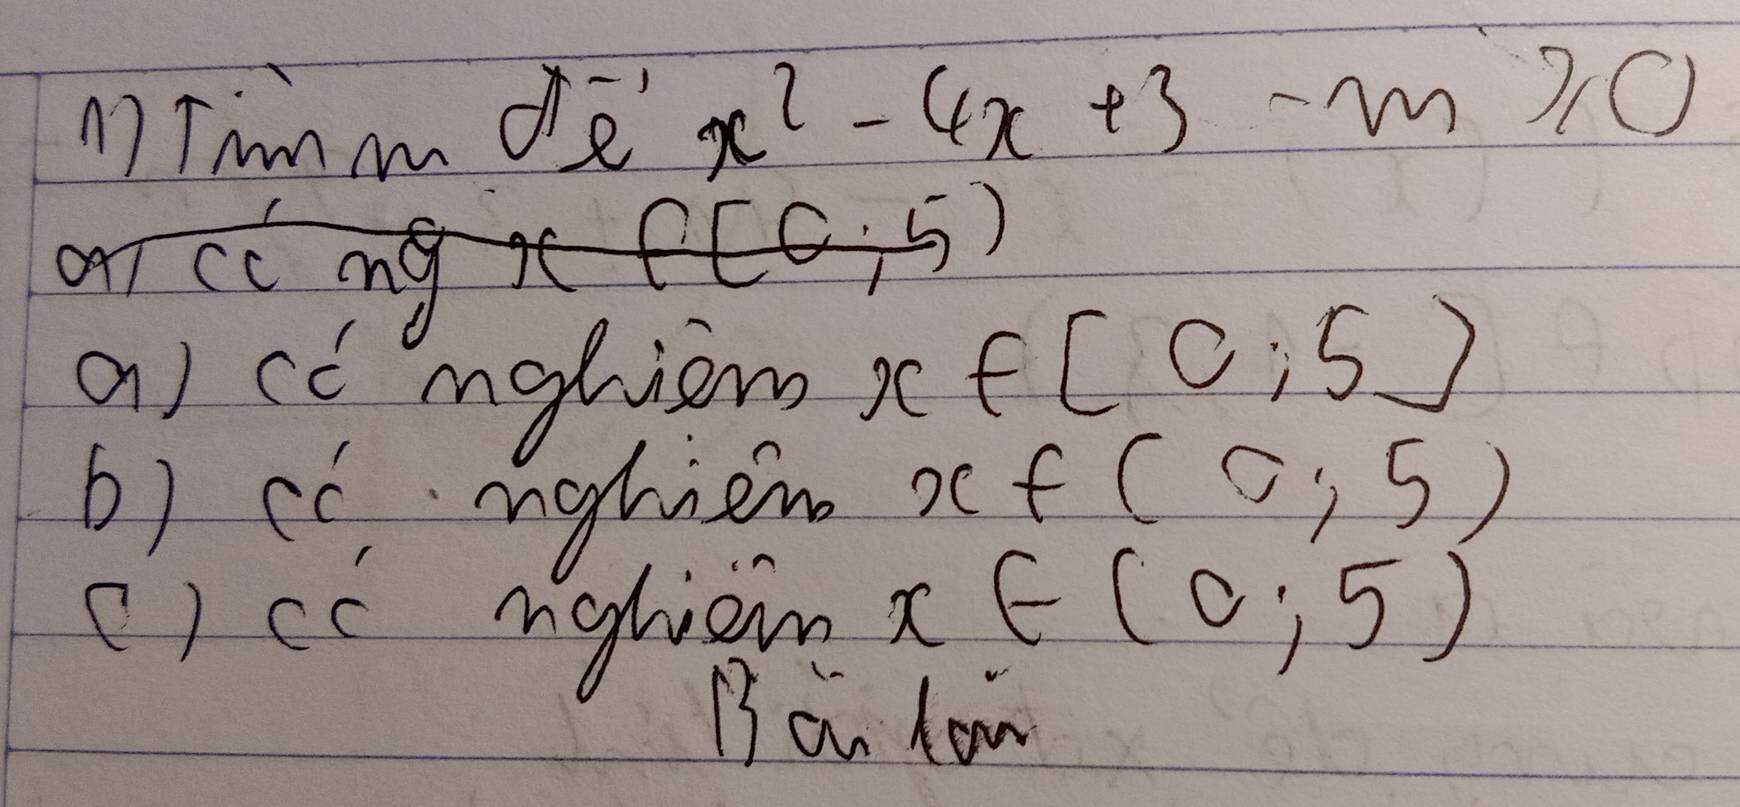 1) Tìm m để x² - 4x + 3 - m ⩾ 0
a) có ng x ∈ [0;5)
a) có nghiệm x ∈ [0;5]
b) có nghiệm x ∈ (0;5)
c) có nghiệm x ∈ (0;5)
Bài làm